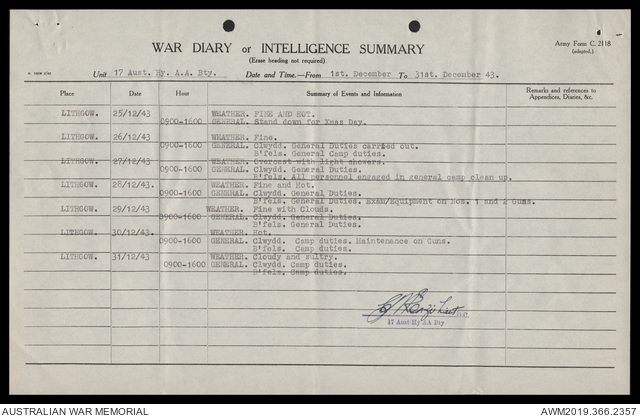 WAR DIARY or INTELLIGENCE SUMMARY
(Erase heading not required).
Army Form C. 2118
(adapted.)
Unit 17 Aust. Hy. A.A. Bty. Date and Time.—From 1st. December To 31st. December 43.
Place Date Hour Summary of Events and Information Remarks and references to Appendices, Diaries, &c.
LITHGOW. 25/12/43 WEATHER. FINE AND HOT.
0900-1600 GENERAL. Stand down for Xmas Day.
LITHGOW. 26/12/43 WEATHER. Fine.
0900-1600 GENERAL. Clwydd. General Duties carried out.
B'fels. General Camp duties.
LITHGOW. 27/12/43 WEATHER. Overcast with light showers.
0900-1600 GENERAL. Clwydd. General Duties.
B'fels. All personnel engaged in general camp clean up.
LITHGOW. 28/12/43 WEATHER. Fine and Hot.
0900-1600 GENERAL. Clwydd. General Duties.
B'fels. General Duties. Exam/Equipment on Nos. 1 and 2 Guns.
LITHGOW. 29/12/43 WEATHER. Fine with Clouds.
0900-1600 GENERAL. Clwydd. General Duties.
B'fels. General Duties.
LITHGOW. 30/12/43. WEATHER. Hot.
0900-1600 GENERAL. Clwydd. Camp duties. Maintenance on Guns.
B'fels. Camp duties.
LITHGOW. 31/12/43 WEATHER. Cloudy and sultry.
0900-1600 GENERAL. Clwydd. Camp duties.
B'fels. Camp duties.
O.C
17 Aust Hy AA Bty
AUSTRALIAN WAR MEMORIAL AWM2019.366.2357